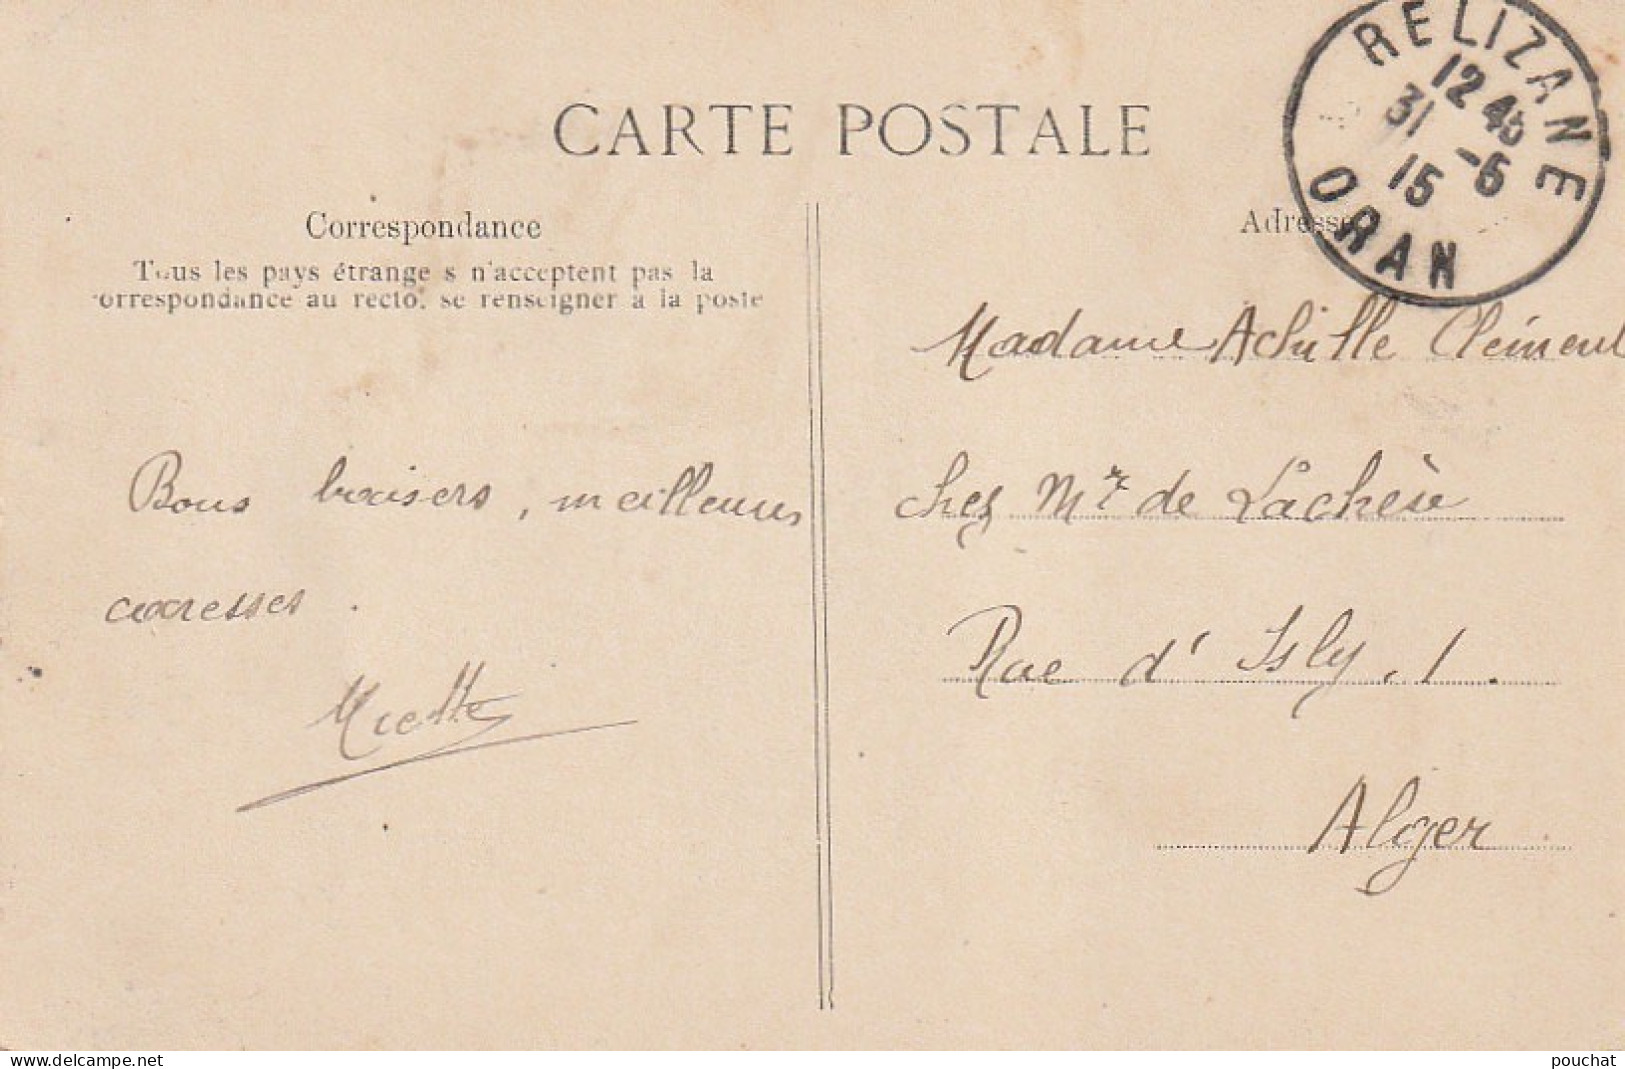 CARTE POSTALE
RELIZANE
12 45
31 -5
15
ORAN
Correspondance
Adresse
Tous les pays étrange s n'acceptent pas la
orrespondance au recto, se renseigner à la poste
Madame Achille Clément
chez Mr de Lachèse
Rue d'Isly, 1.
Alger
Bons baisers, meilleures
caresses.
Miette
www.delcampe.net
pouchat